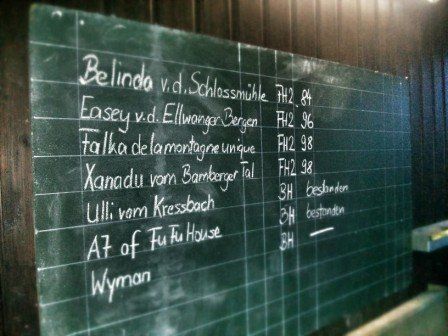 Belinda v.d. Schlossmühle FH2 84
Easey v.d. Ellwanger Bergen FH2 96
Falka de la montagne unique FH2 98
Xanadu vom Bamberger Tal FH2 98
Ulli vom Kressbach BH bestanden
A7 of FuFu House BH bestanden
Wyman BH —